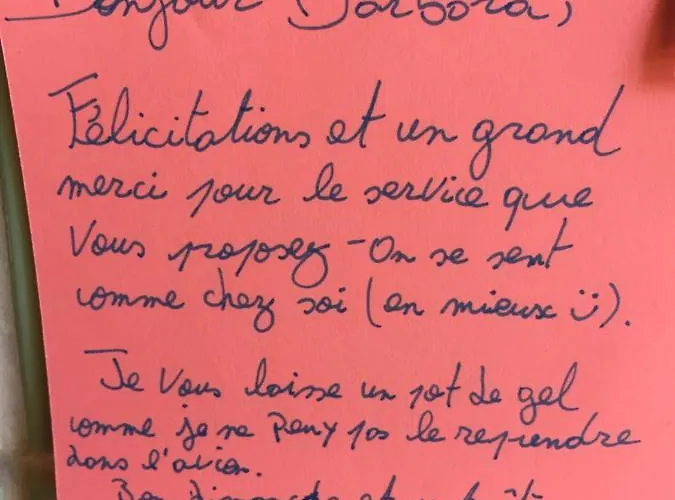 Bonjour Barbora,
Félicitations et un grand
merci pour le service que
vous proposez - On se sent
comme chez soi (en mieux ü).
Je vous laisse un pot de gel
comme je ne peux pas le reprendre
dans l'avion.
Bon dimanche et